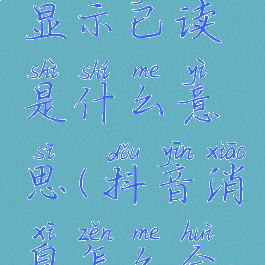 显示已读
shì shí me yì
是什么意
sī dǒu yīn xiāo
思(抖音消
xī zěn me huì
息怎么会